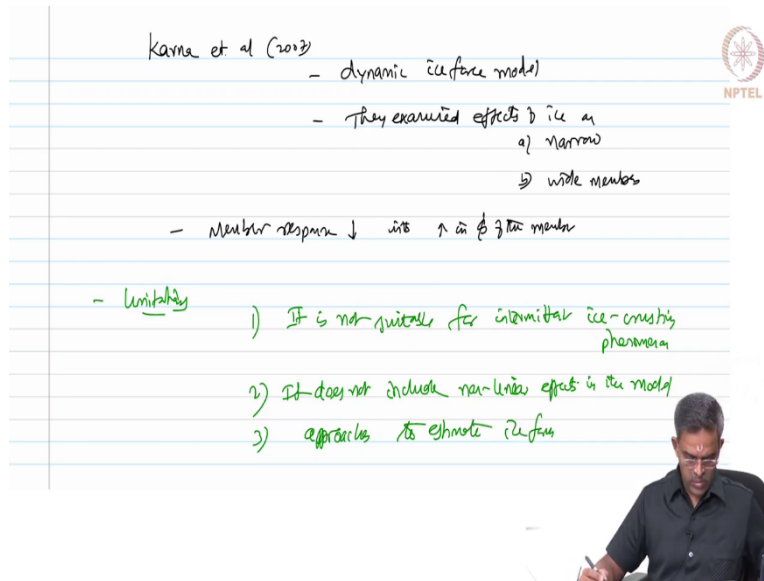 Karna et. al (2007)
NPTEL
- dynamic ice force model
- They examined effects of ice on
a) narrow
b) wide members
- Member response ↓ with ↑ in ϕ of the member
- Limitations
1) It is not suitable for intermittent ice-crushing
phenomena
2) It does not include non-linear effects in the model
3) approaches to estimate ice forces